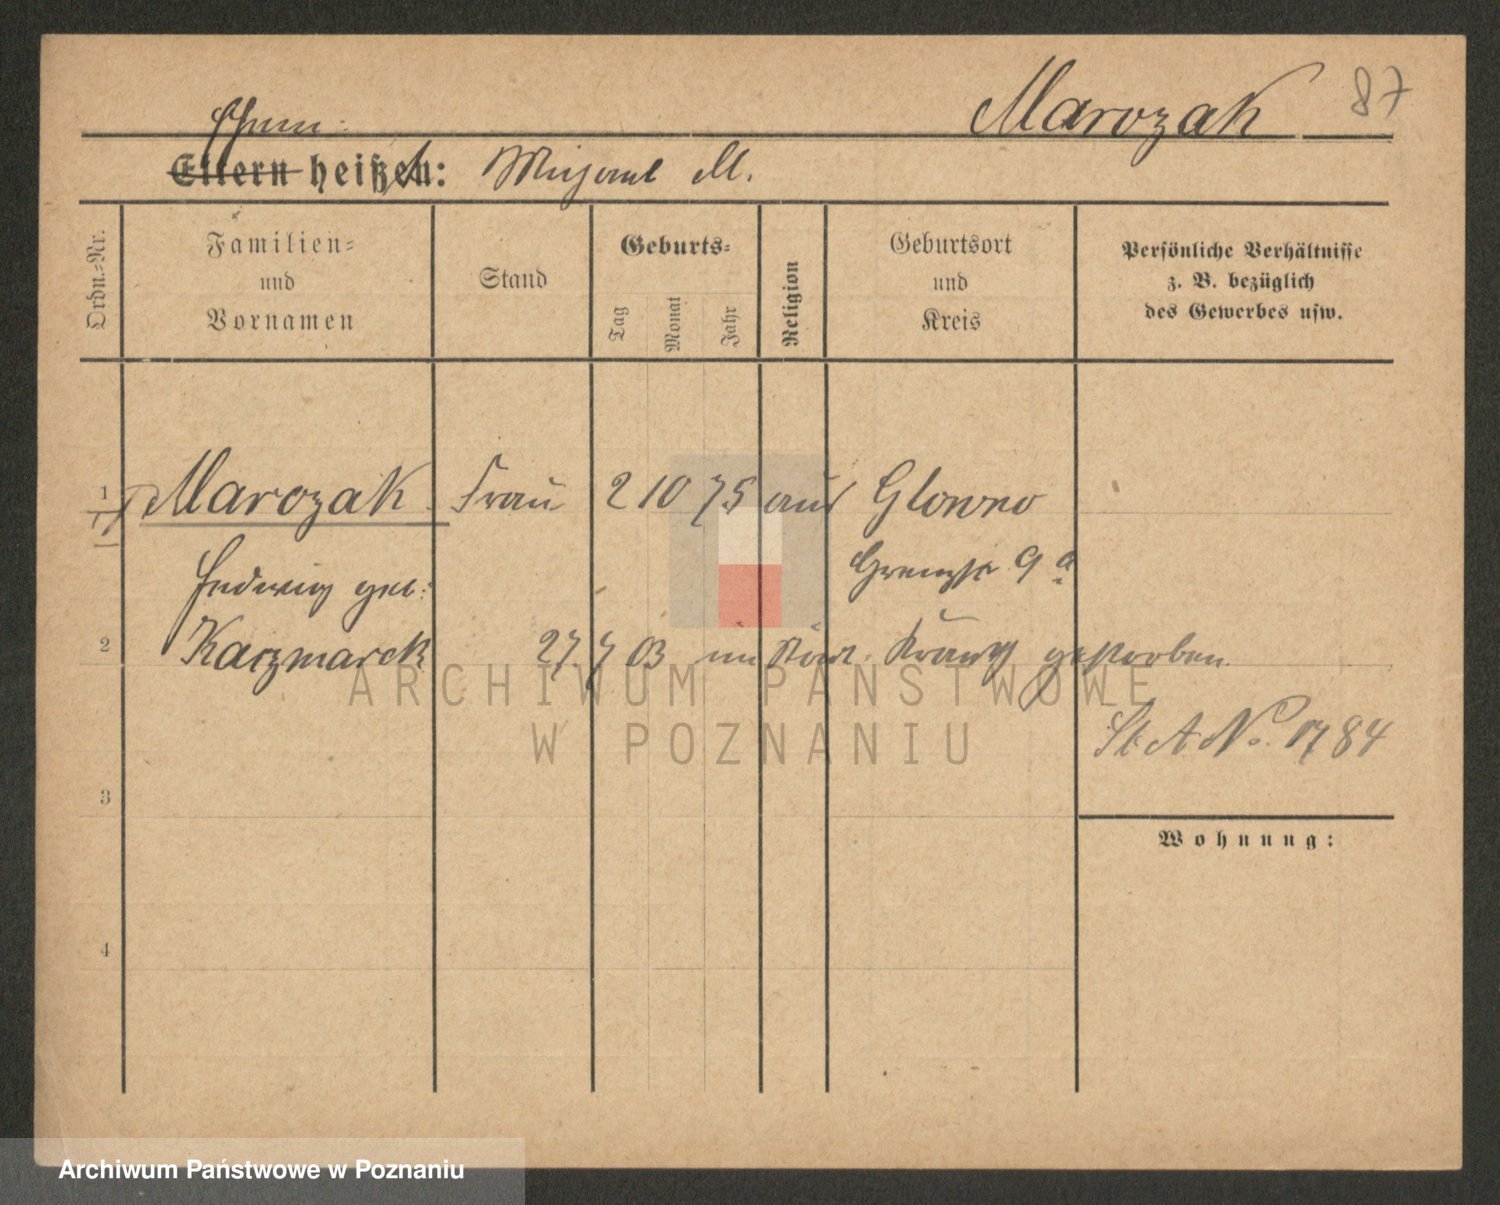 Marozak 87
Ehem:
Eltern heißen: Michael M.
Ordn.=Nr.
Familien=
und
Vornamen
Stand
Geburts=
Tag
Monat
Jahr
Religion
Geburtsort
und
Kreis
Persönliche Verhältnisse
z. B. bezüglich
des Gewerbes usw.
1 Marozak Frau 2 10 75 aus Glowno
Hedwig geb: Grenzstr 9a
2 Kaczmarek 27 7 03 im Städt. Krankh gestorben.
St A No. 1784
3
Wohnung:
4
ARCHIWUM PAŃSTWOWE
W POZNANIU
Archiwum Państwowe w Poznaniu